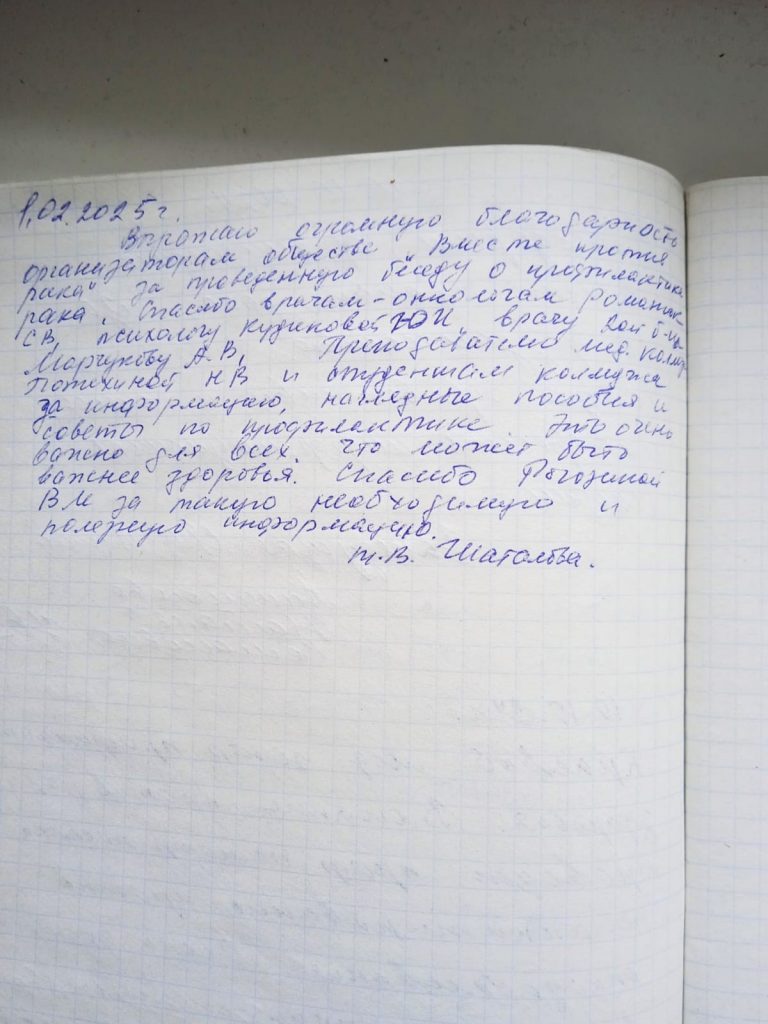 1.02.2025г.
Выражаю огромную благодарность
организаторам общества „Вместе против
рака" за проведенную беседу о профилактике
рака. Спасибо врачам-онкологам
СВ, психологу Кудиновой ЮН, врачу 2ой б-цы
Марчукову А.В, Преподавателю мед. колледж
Потихиной НВ и студентам колледжа
за информацию, наглядные пособия и
советы по профилактике. Это очень
важно для всех. Что может быть
важнее здоровья. Спасибо Рогозиной
ВМ за такую необходимую и
полезную информацию.
т.В. Шаталова.